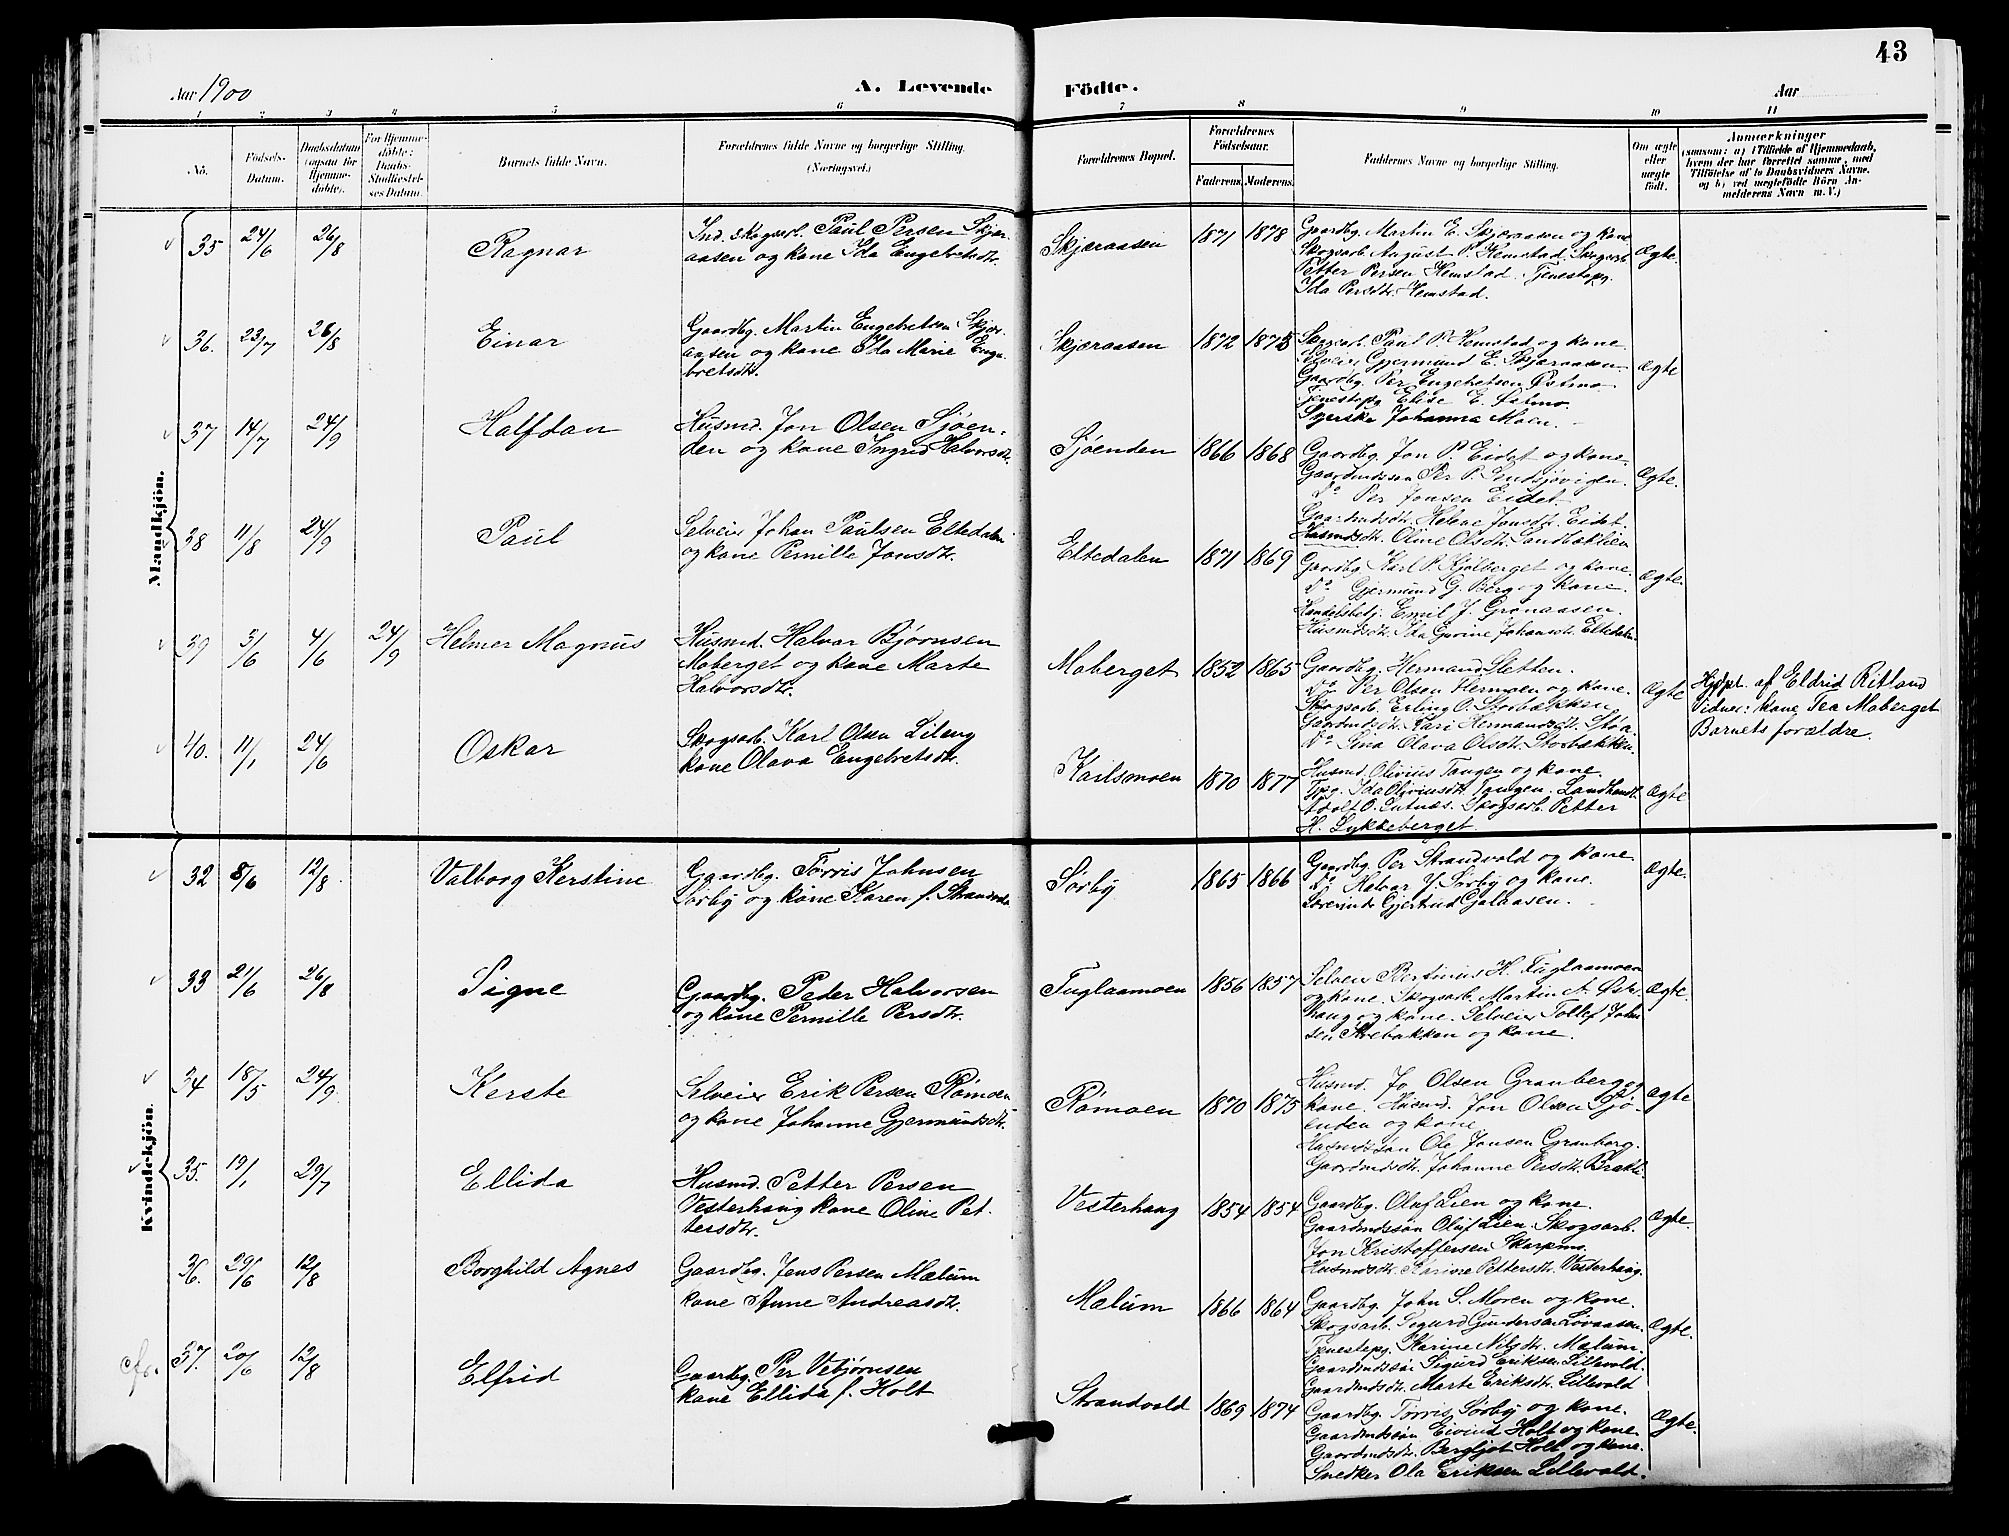 43
Aar 1900
A. Levende
Födte.
Aar
1 2 3 4 5 6 7 8 9 10 11
No.
Födsels-Datum.
Daabsdatum (ogsaa for Hjemmedöbte).
For Hjemmedöbte: Daabs-Stadfæstelses Datum.
Barnets fulde Navn.
Forældrenes fulde Navne og borgerlige Stilling.
(Næringsvei.)
Forældrenes Bopæl.
Forældrenes Födselsaar.
Faderens. Moderens.
Faddernes Navne og borgerlige Stilling.
Om ægte eller uægte födt.
Anmærkninger
(saasom: a) i Tilfælde af Hjemmedaab, hvem der har forrettet samme, med Tilföielse af to Daabsvidners Navne, og b) ved uægtefödte Börn Anmelderens Navn m. V.)
Mandkjön.
35 24/6 26/8 Ragnar
Ind. Skogsarb. Paul Persen Skjær-
aasen og kone Ida Engebretsdtr.
Skjæraasen 1871 1878
Gaardbg. Martin E. Skjæraasen og kone
Skogsarb. August P. Kemstad. Skogsarb.
Petter Persen Kemstad. Tjenestepg.
Ida Persdtr. Kemstad.
Ægte.
36. 23/7 26/8 Einar
Gaardbg. Martin Engebretsen Skjær-
aasen og kone Ida Marie Enge-
bretsdtr.
Skjæraasen 1872 1875
Skogsarb. Paul P. Kemstad og kone
Selveier Gjermund E. Skjæraasen
Gaardbg. Per Engebretsen Østmo
Tjenestepg Elise E. Østmo.
Syerske Johanna Moen.
Ægte
37 14/7 24/9 Halfdan
Husmd. Jon Olsen Sjøen-
den og kone Ingrid Halvorsdtr.
Sjøenden 1866 1868
Gaardbg. Jon P. Eidet og kone.
Gaardmdssøn Per P. Lendsjøvigen.
Do Per Jonsen Eidet
Gaardmdsdtr. Helene Jonsdtr. Eidet.
Husmdsdtr. Oline Olsdtr. Sandbaklien
Ægte.
38 11/8 24/9 Paul
Selveier Johan Paulsen Eltedalen
og kone Pernille Jonsdtr.
Eltedalen 1871 1869
Gaardbg. Karl P. Kjølberget og kone.
Do Gjermund G. Berg og kone.
Handelsbetj. Emil J. Grønaasen.
Husmdsdtr. Ida Gurine Johansdtr. Eltedalen.
Ægte.
39 3/6 4/6 24/9 Helmer Magnus
Husmd. Halvar Bjørnsen
Moberget og kone Marte
Halvorsdtr.
Moberget 1852 1865
Gaardbg. Herman Sletten.
Do Per Olsen Hermoen og kone.
Skogsarb. Erling O. Storbækken
Gaardmdsdtr. Kari Hermandsdtr. Støa.
Do Lina Olava Olsdtr. Storbækken.
Ægte
Hjdpt. af Eldrid Ritland
Vidner: kone Tea Moberget
Barnets forældre.
40. 11/1 24/6 Oskar
Skogsarb. Karl Olsen Lileng
kone Olava Engebretsdtr.
Karlsmoen 1870 1877
Husmd. Olivius Tangen og kone.
Tjpg. Ida Oliviusdtr. Tangen. Landhandl.
Adolf O. Lutnæs. Skogsarb. Petter
H. Lykkeberget
Ægte
Kvindekjön.
32 8/6 12/8 Valborg Kerstine
Gaardbg. Tørris Johnsen
Sørby og kone Karen f. Strandvold
Sørby 1865 1866
Gaardbg. Per Strandvold og kone.
Do Halvar J. Sørby og kone.
Lærerinde Gjertrud Galaasen.
Ægte.
33 21/6 26/8 Signe
Gaardbg. Peder Halvorsen
og kone Pernille Persdtr.
Fuglaamoen 1856 1857
Selveier Bertinius H. Fuglaamoen
og kone. Skogsarb. Martin A. Øst-
haug og kone. Selveier Tollef John-
sen Strebakken og kone.
Ægte.
34 18/5 24/9 Kerste
Selveier Erik Persen Rømoen
og kone Johanne Gjermundsdtr.
Rømoen 1870 1875
Husmd. Jo Olsen Granberg og
kone. Husmd. Jon Olsen Sjø-
enden og kone
Husmdssøn Ole Jonsen Granberg.
Gaardmdsdtr. Johanne Persdtr. Brakli.
Ægte
35. 19/1 29/7 Ellida
Husmd. Petter Persen
Vesterhaug kone Oline Pet-
tersdtr.
Vesterhaug 1854 1854
Gaardbg. Oluf Lien og kone.
Gaardmdssøn Oluf Lien. Skogsarb.
Jon Kristoffersen Skarpmo.
Husmdsdtr. Karine Pettersdtr. Vesterhaug.
Ægte.
36. 29/6 12/8 Borghild Agnes
Gaardbg. Jens Persen Mælum
kone Anne Andreasdtr.
Mælum 1866 1864
Gaardbg. John S. Moren og kone.
Skogsarb. Sigurd Gundersen Løvaasen.
Tjenestepg. Karine Nilsdtr. Mælum.
Gaardmdssøn Sigurd Eriksen Lillevold.
Gaardmdsdtr. Marte Eriksdtr. Lillevold
Ægte.
37. 20/6 12/8 Elfrid
Gaardbg. Per Vebjørnsen
kone Ellida f. Holt
Strandvold 1869 1874
Gaardbg. Tørris Sørby og kone.
Gaardmdssøn Eivind Holt og kone
Gaardmdsdtr. Bergljot Holt og kone.
Snedker Ola Eriksen Lillevold.
Ægte.